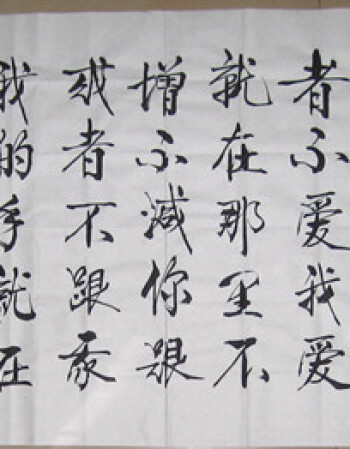 者不爱我爱
就在那里不
增不减你跟
或者不跟我
我的手就在